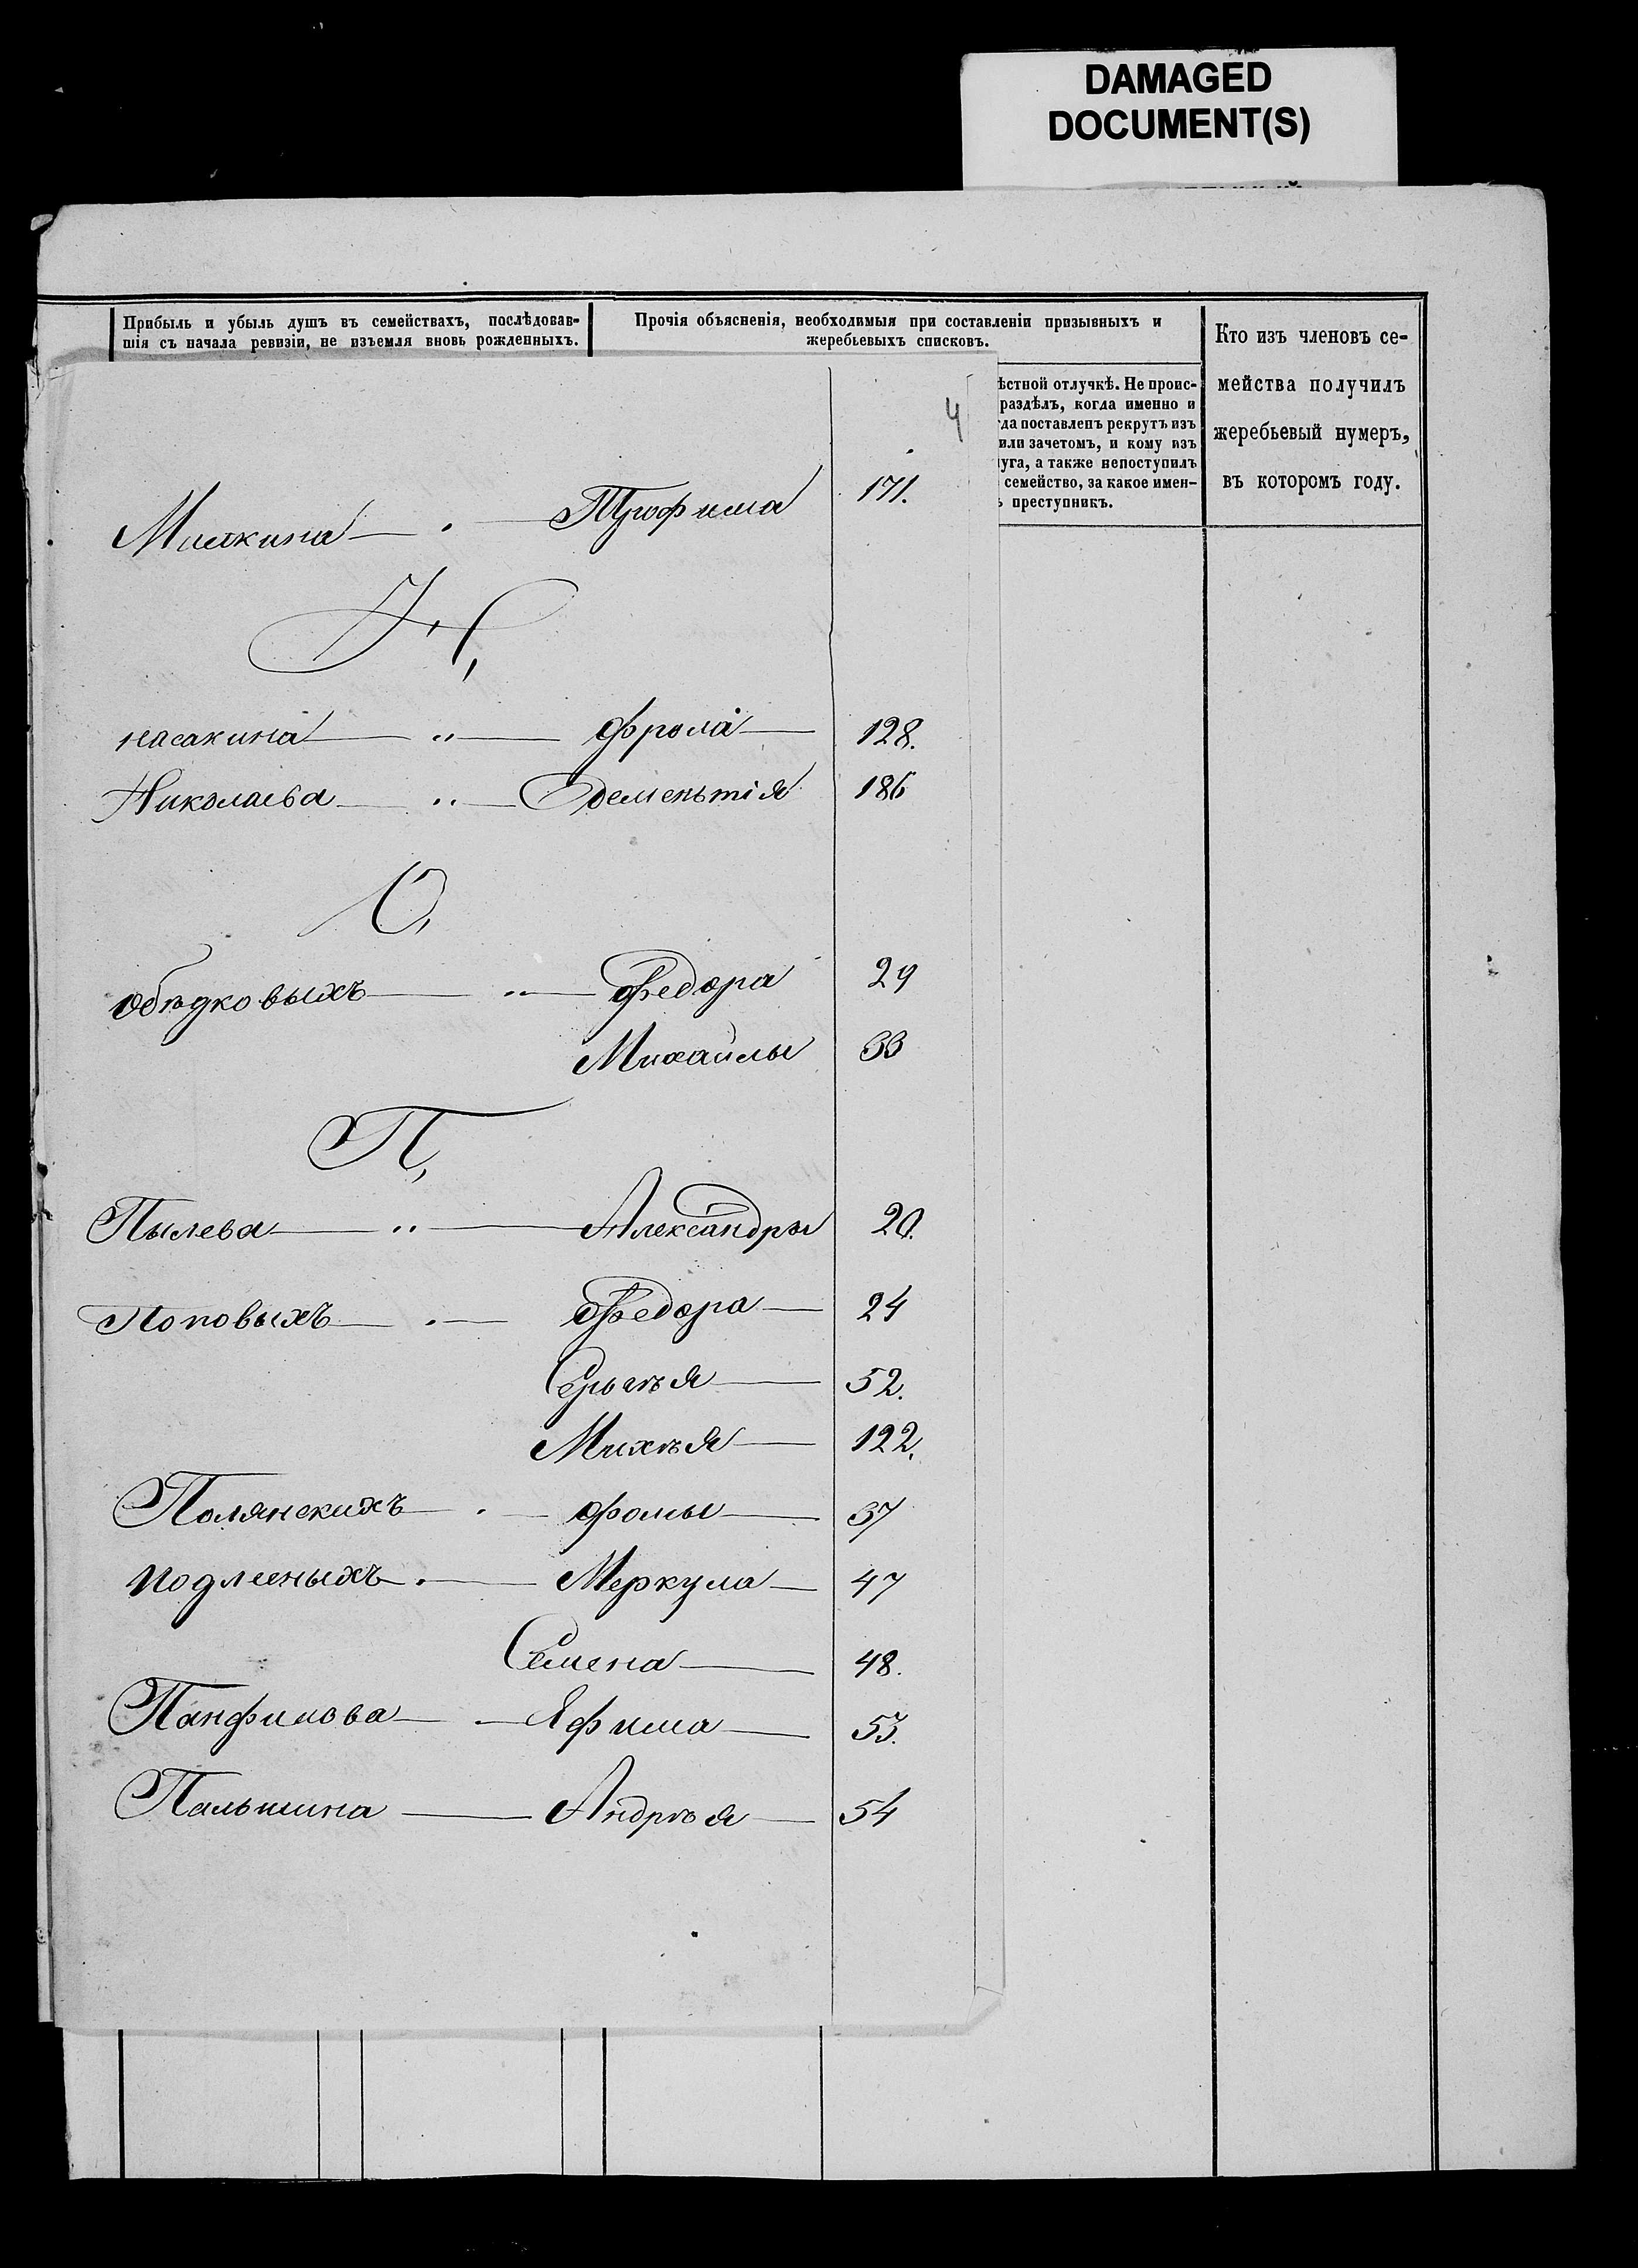 DAMAGED
DOCUMENT(S)
Прибыль и убыль душъ въ семействахъ, послѣдовав-
шія съ начала ревизіи, не изъемля вновь рожденныхъ.
Прочія объясненія, необходимыя при составленіи призывныхъ и
жеребьевыхъ списковъ.
Кто изъ членовъ се-
мейства получилъ
жеребьевый нумеръ,
въ которомъ году.
ѣстной отлучкѣ. Не проис-
раздѣлъ, когда именно и
да поставленъ рекрутъ изъ
или зачетомъ, и кому изъ
уга, а также непоступилъ
семейство, за какое имен-
ъ преступникъ.
4
Мишкина — Трофима 171.
Н,
насакина — " — Фрола — 128.
Николаева — " — Дементія 186
О,
Обѣдковыхъ — " — Федора 29
Михайлы 33
П,
Пылева — " — Александры 20.
Поповыхъ — Федора — 24
Сергѣя — 52.
Михѣя — 122.
Полянскихъ — Фомы — 37
Подлесныхъ — Меркула — 47
Семена — 48.
Панфилова — Ефима — 53.
Пальшина — Андрѣя — 54